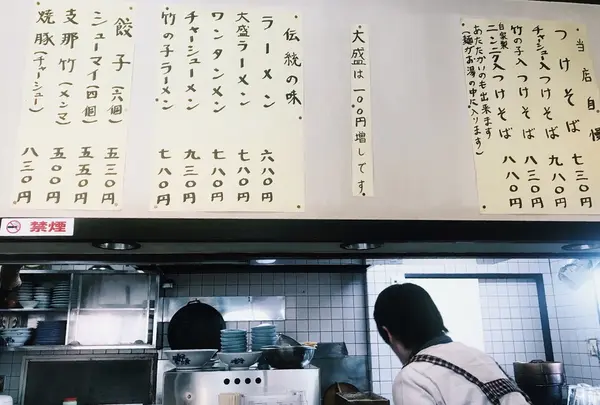 当店自慢
つけそば 七三〇円
チャーシュー入つけそば 九八〇円
竹の子入つけそば 八三〇円
自家製ニンニク入つけそば 八八〇円
あたたかいのも出来ます
(麺がお湯の中に入ります)
大盛は一〇〇円増しです。
伝統の味
ラーメン 六八〇円
大盛ラーメン 七八〇円
ワンタンメン 七八〇円
チャーシューメン 九三〇円
竹の子ラーメン 七八〇円
餃子(六個) 五三〇円
シューマイ(四個) 五五〇円
支那竹(メンマ) 五五〇円
焼豚(チャーシュー) 八三〇円
禁煙